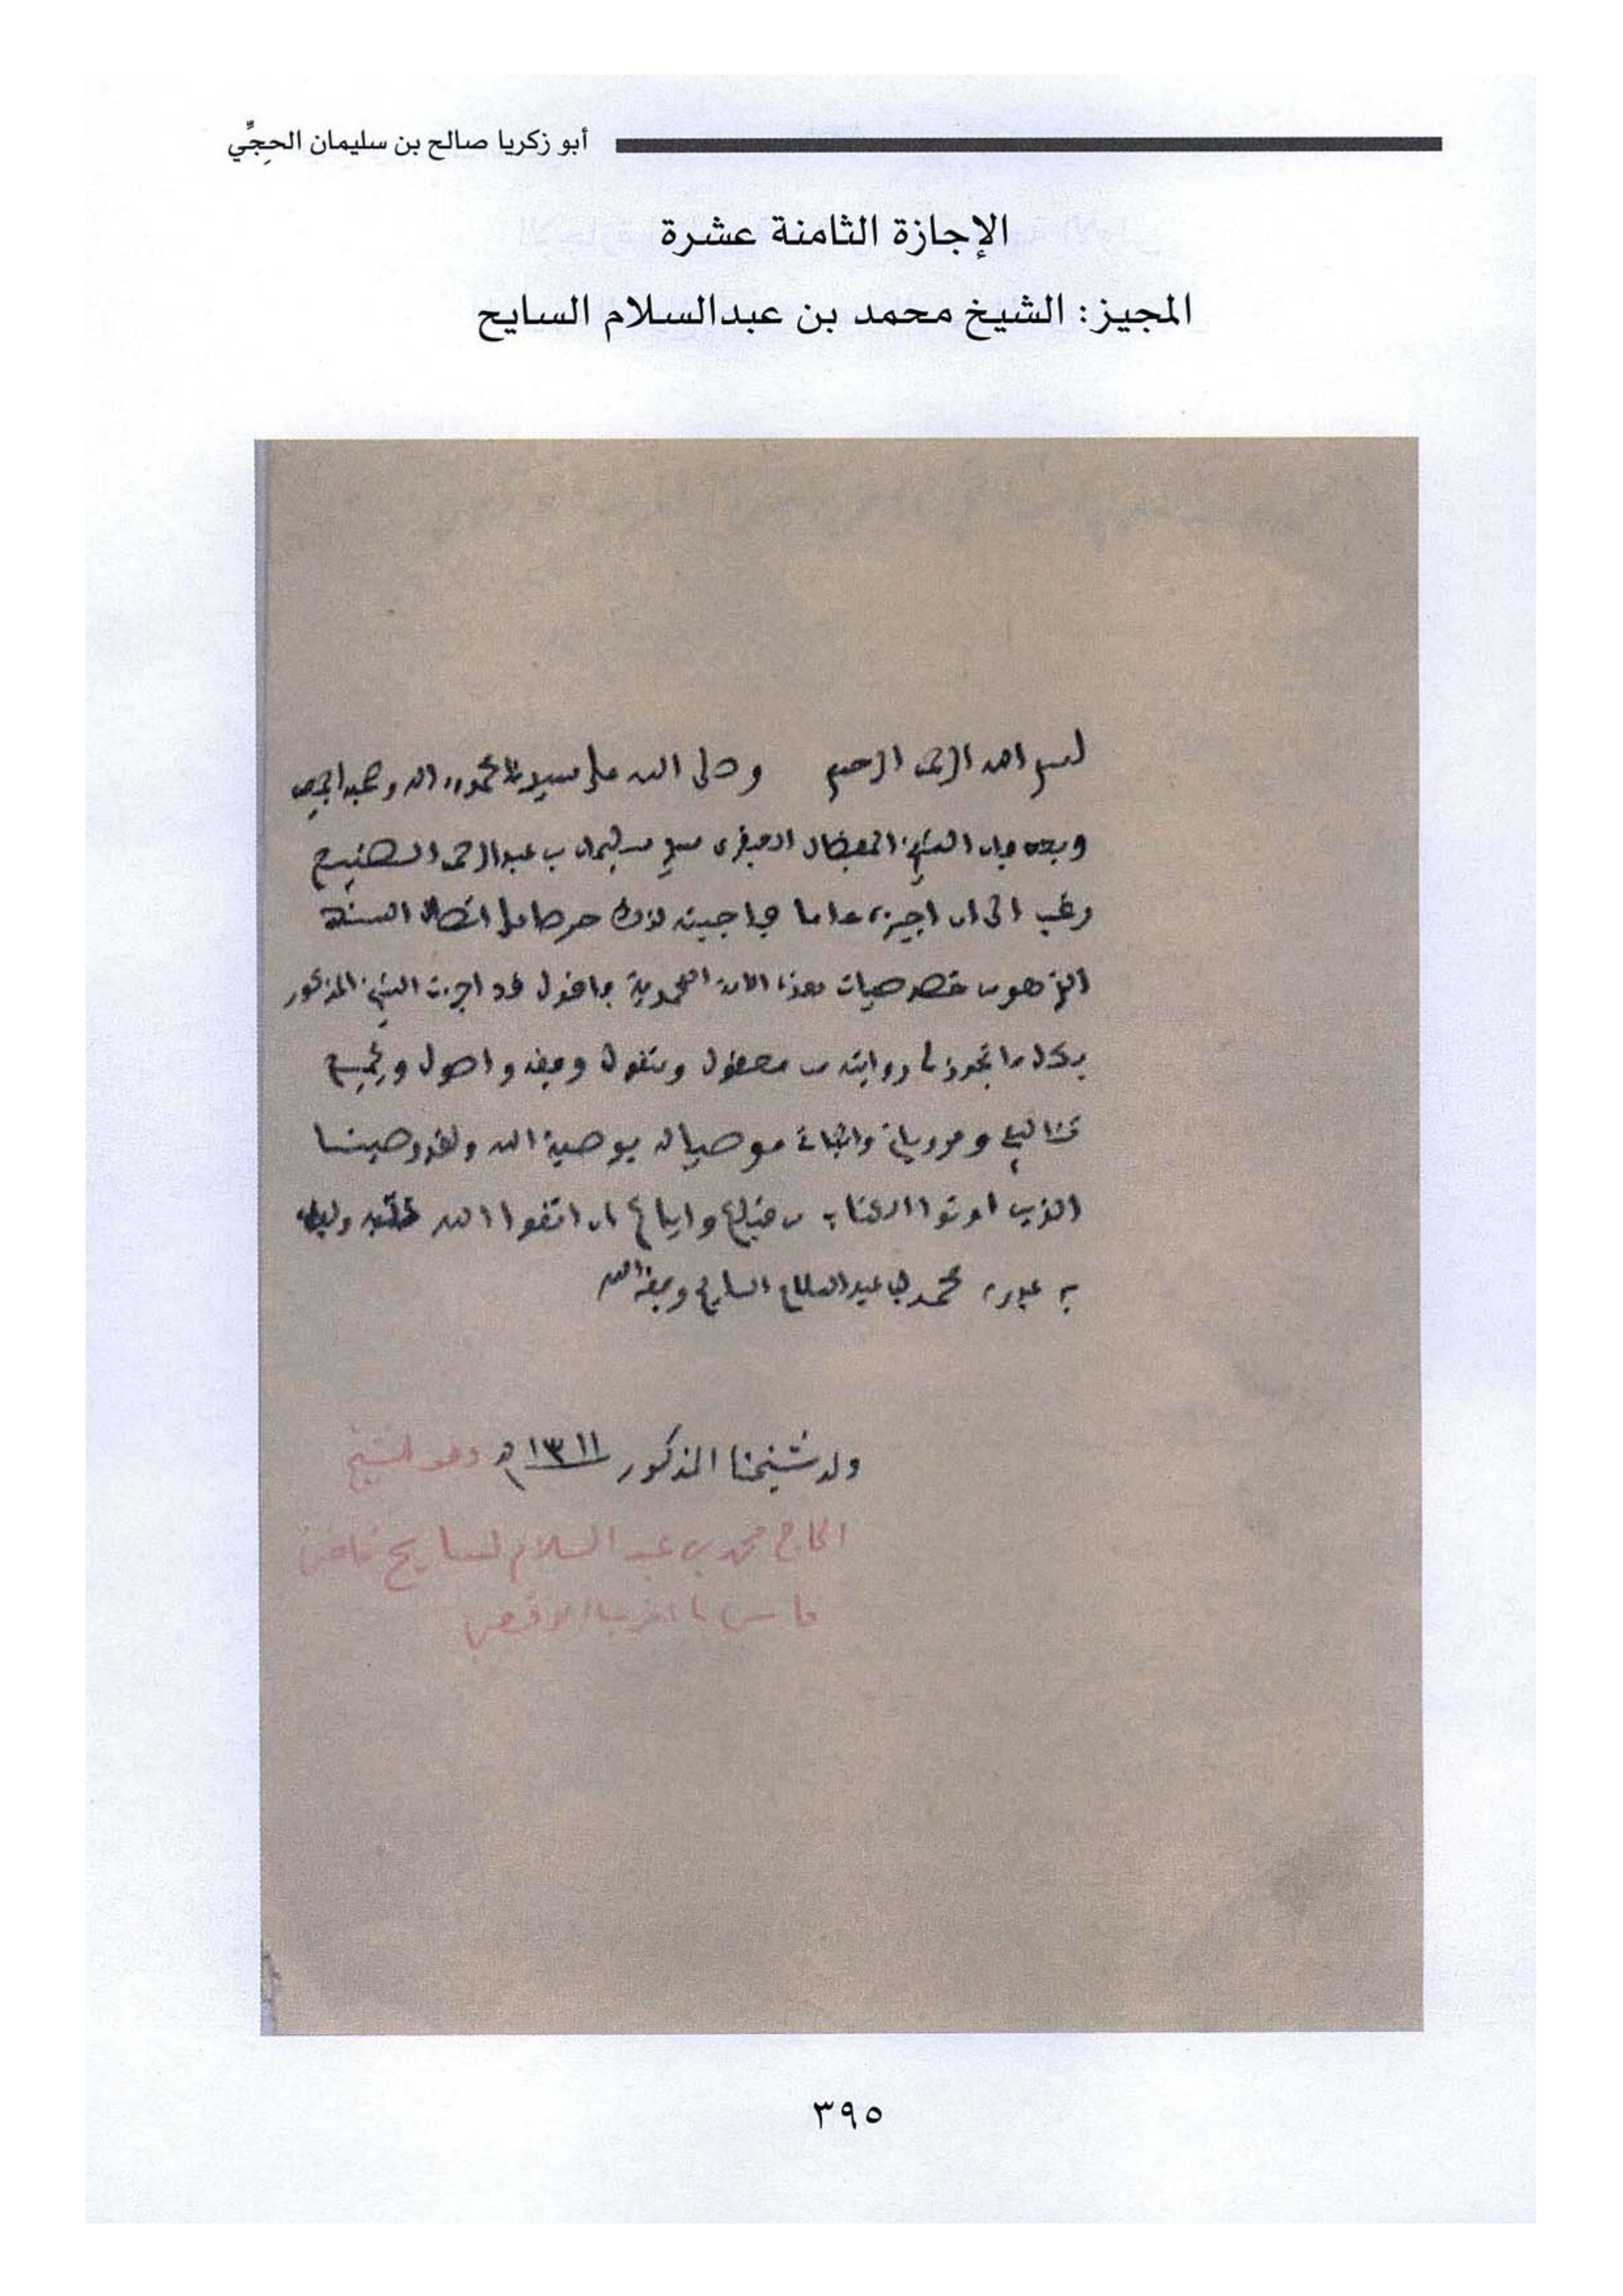 أبو زكريا صالح بن سليمان الحجِّي
الإجازة الثامنة عشرة
المجيز: الشيخ محمد بن عبدالسلام السايح
بسم الله الرحمن الرحيم وصلى الله على سيدنا محمد وءاله وصحبه اجمعين
وبعد فإن الشيخ المفضال سليمان بن عبد الرحمن الصنيع
رغب الى ان اجيزه عاما فاجبته لذلك حرصا على اتصال السند
الذي هو من خصوصيات هذه الامة المحمدية فاقول قد اجزت الشيخ المذكور
بكل ما تجوز لي روايته من معقول ومنقول وفقه واصول وبجميع
تئاليفي ومروياتي موصيا له بوصية الله ولقد وصينا
الذين اوتوا الكتاب من قبلكم واياكم ان اتقوا الله
عبد ربه محمد بن عبد السلام السايح وفقه الله
ولد شيخنا المذكور ١٣١١ هـ وهو الشيخ
الحاج محمد بن عبد السلام السايح قاضي
فاس بالمغرب الاقصى
٣٩٥